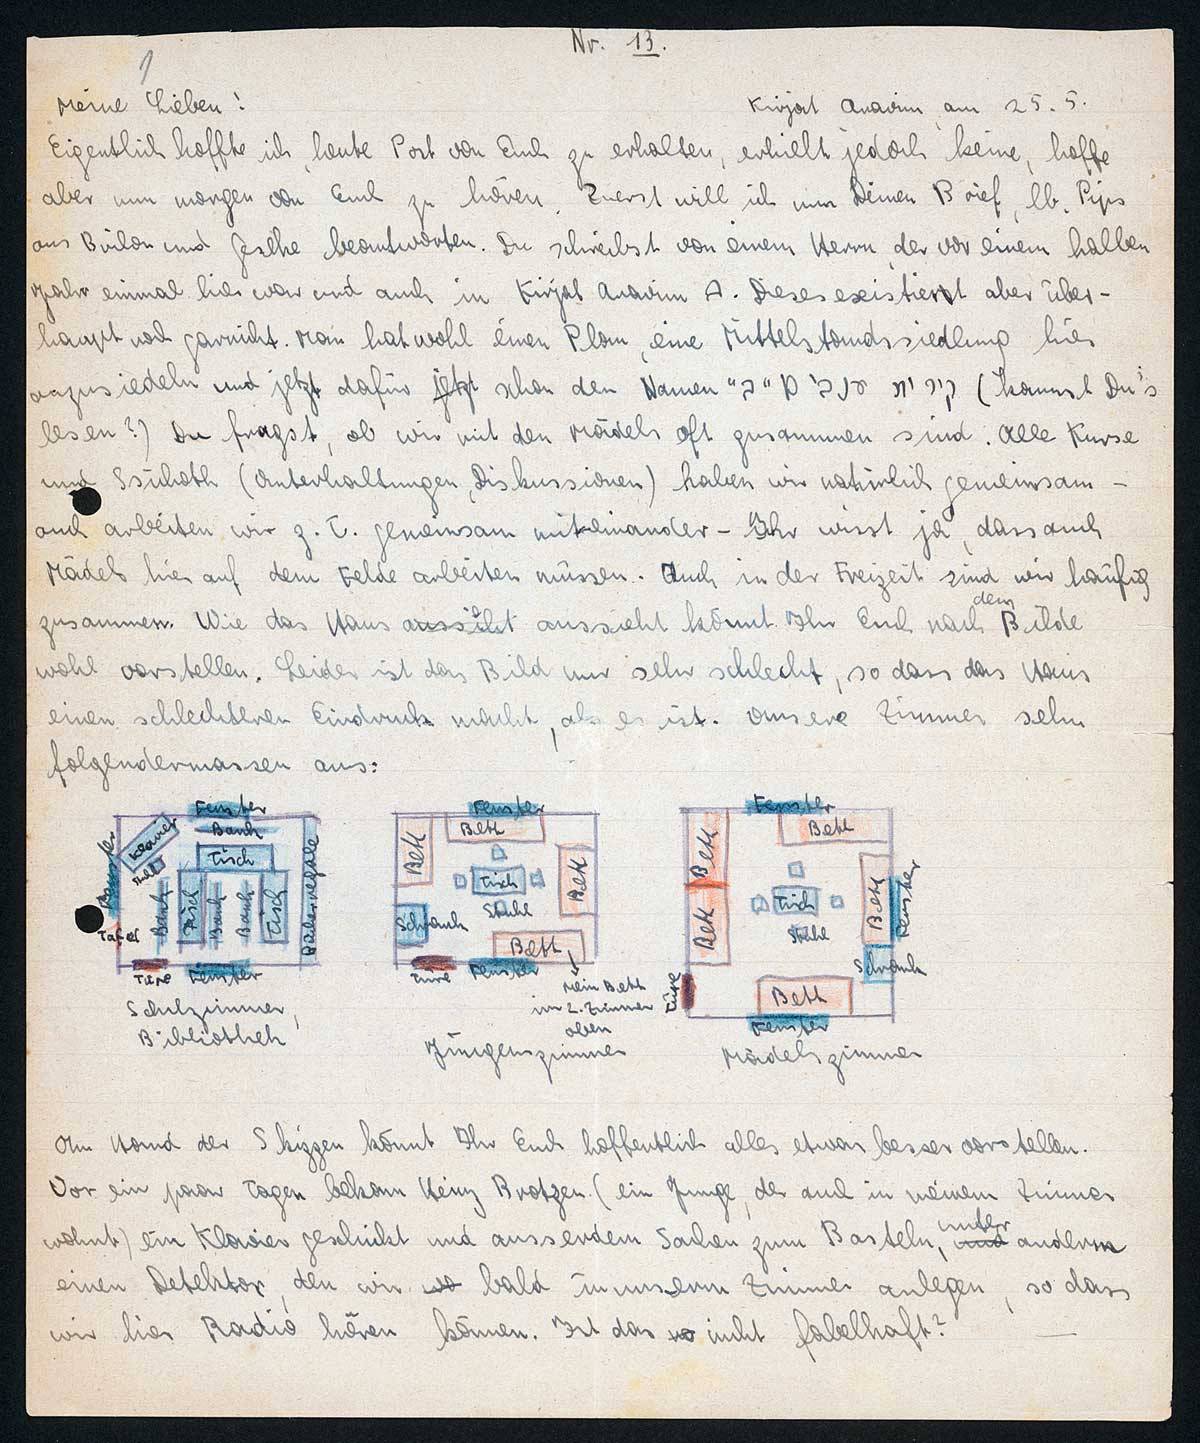 Nr. 13.
Meine Lieben!
Kirjat Anavim, am 25.5.
Eigentlich hoffte ich, heute Post von Euch zu erhalten, erhielt jedoch keine, hoffe
aber nun morgen von Euch zu hören. Zuerst will ich nun Deinen Brief, lb. Pips
aus Brilon und Geseke beantworten. Du schreibst von einem Herrn, der vor einem halben
Jahr einmal hier war und auch in Kirjat Anavim A. Dieses existiert aber über-
haupt noch garnicht. Man hat wohl einen Plan, eine Mittelstandssiedlung hier
anzusiedeln und jetzt dafür jetzt schon den Namen "קירית ענבים ב" (kannst Du's
lesen?) Du fragst, ob wir mit den Mädels oft zusammen sind. Alle Kurse
und Ssichoth (Unterhaltungen, Diskussionen) haben wir natürlich gemeinsam -
auch arbeiten wir z. T. gemeinsam miteinander - Ihr wisst ja, dass auch
Mädels hier auf dem Felde arbeiten müssen. Auch in der Freizeit sind wir häufig
zusammen. Wie das Haus aussieht könnt Ihr Euch nach dem Bilde
wohl vorstellen. Leider ist das Bild nur sehr schlecht, so dass das Haus
einen schlechteren Eindruck macht, als es ist. Unsere Zimmer sehn
folgendermassen aus:
Fenster
Bank
Klavier
Stuhl
Tisch
Fenster
Bank
Tisch
Bank
Bank
Tisch
Bücherregale
Tafel
Türe
Fenster
Schulzimmer,
Bibliothek
Fenster
Bett
Bett
Bett
Tisch
Stühle
Schrank
Bett
Türe
Fenster
Mein Bett
im 2. Zimmer
oben
Jungenszimmer
Fenster
Bett
Bett
Bett
Bett
Fenster
Tisch
Stühle
Schrank
Türe
Bett
Fenster
Mädelszimmer
An Hand der Skizzen könnt Ihr Euch hoffentlich alles etwas besser vorstellen.
Vor ein paar Tagen bekam Heinz Brotzen (ein Junge, der auch in meinem Zimmer
wohnt) ein Klavier geschickt und ausserdem Sachen zum Basteln, unter anderm
einen Detektor, den wir bald in unserm Zimmer anlegen, so dass
wir hier Radio hören können. Ist das nicht fabelhaft? —